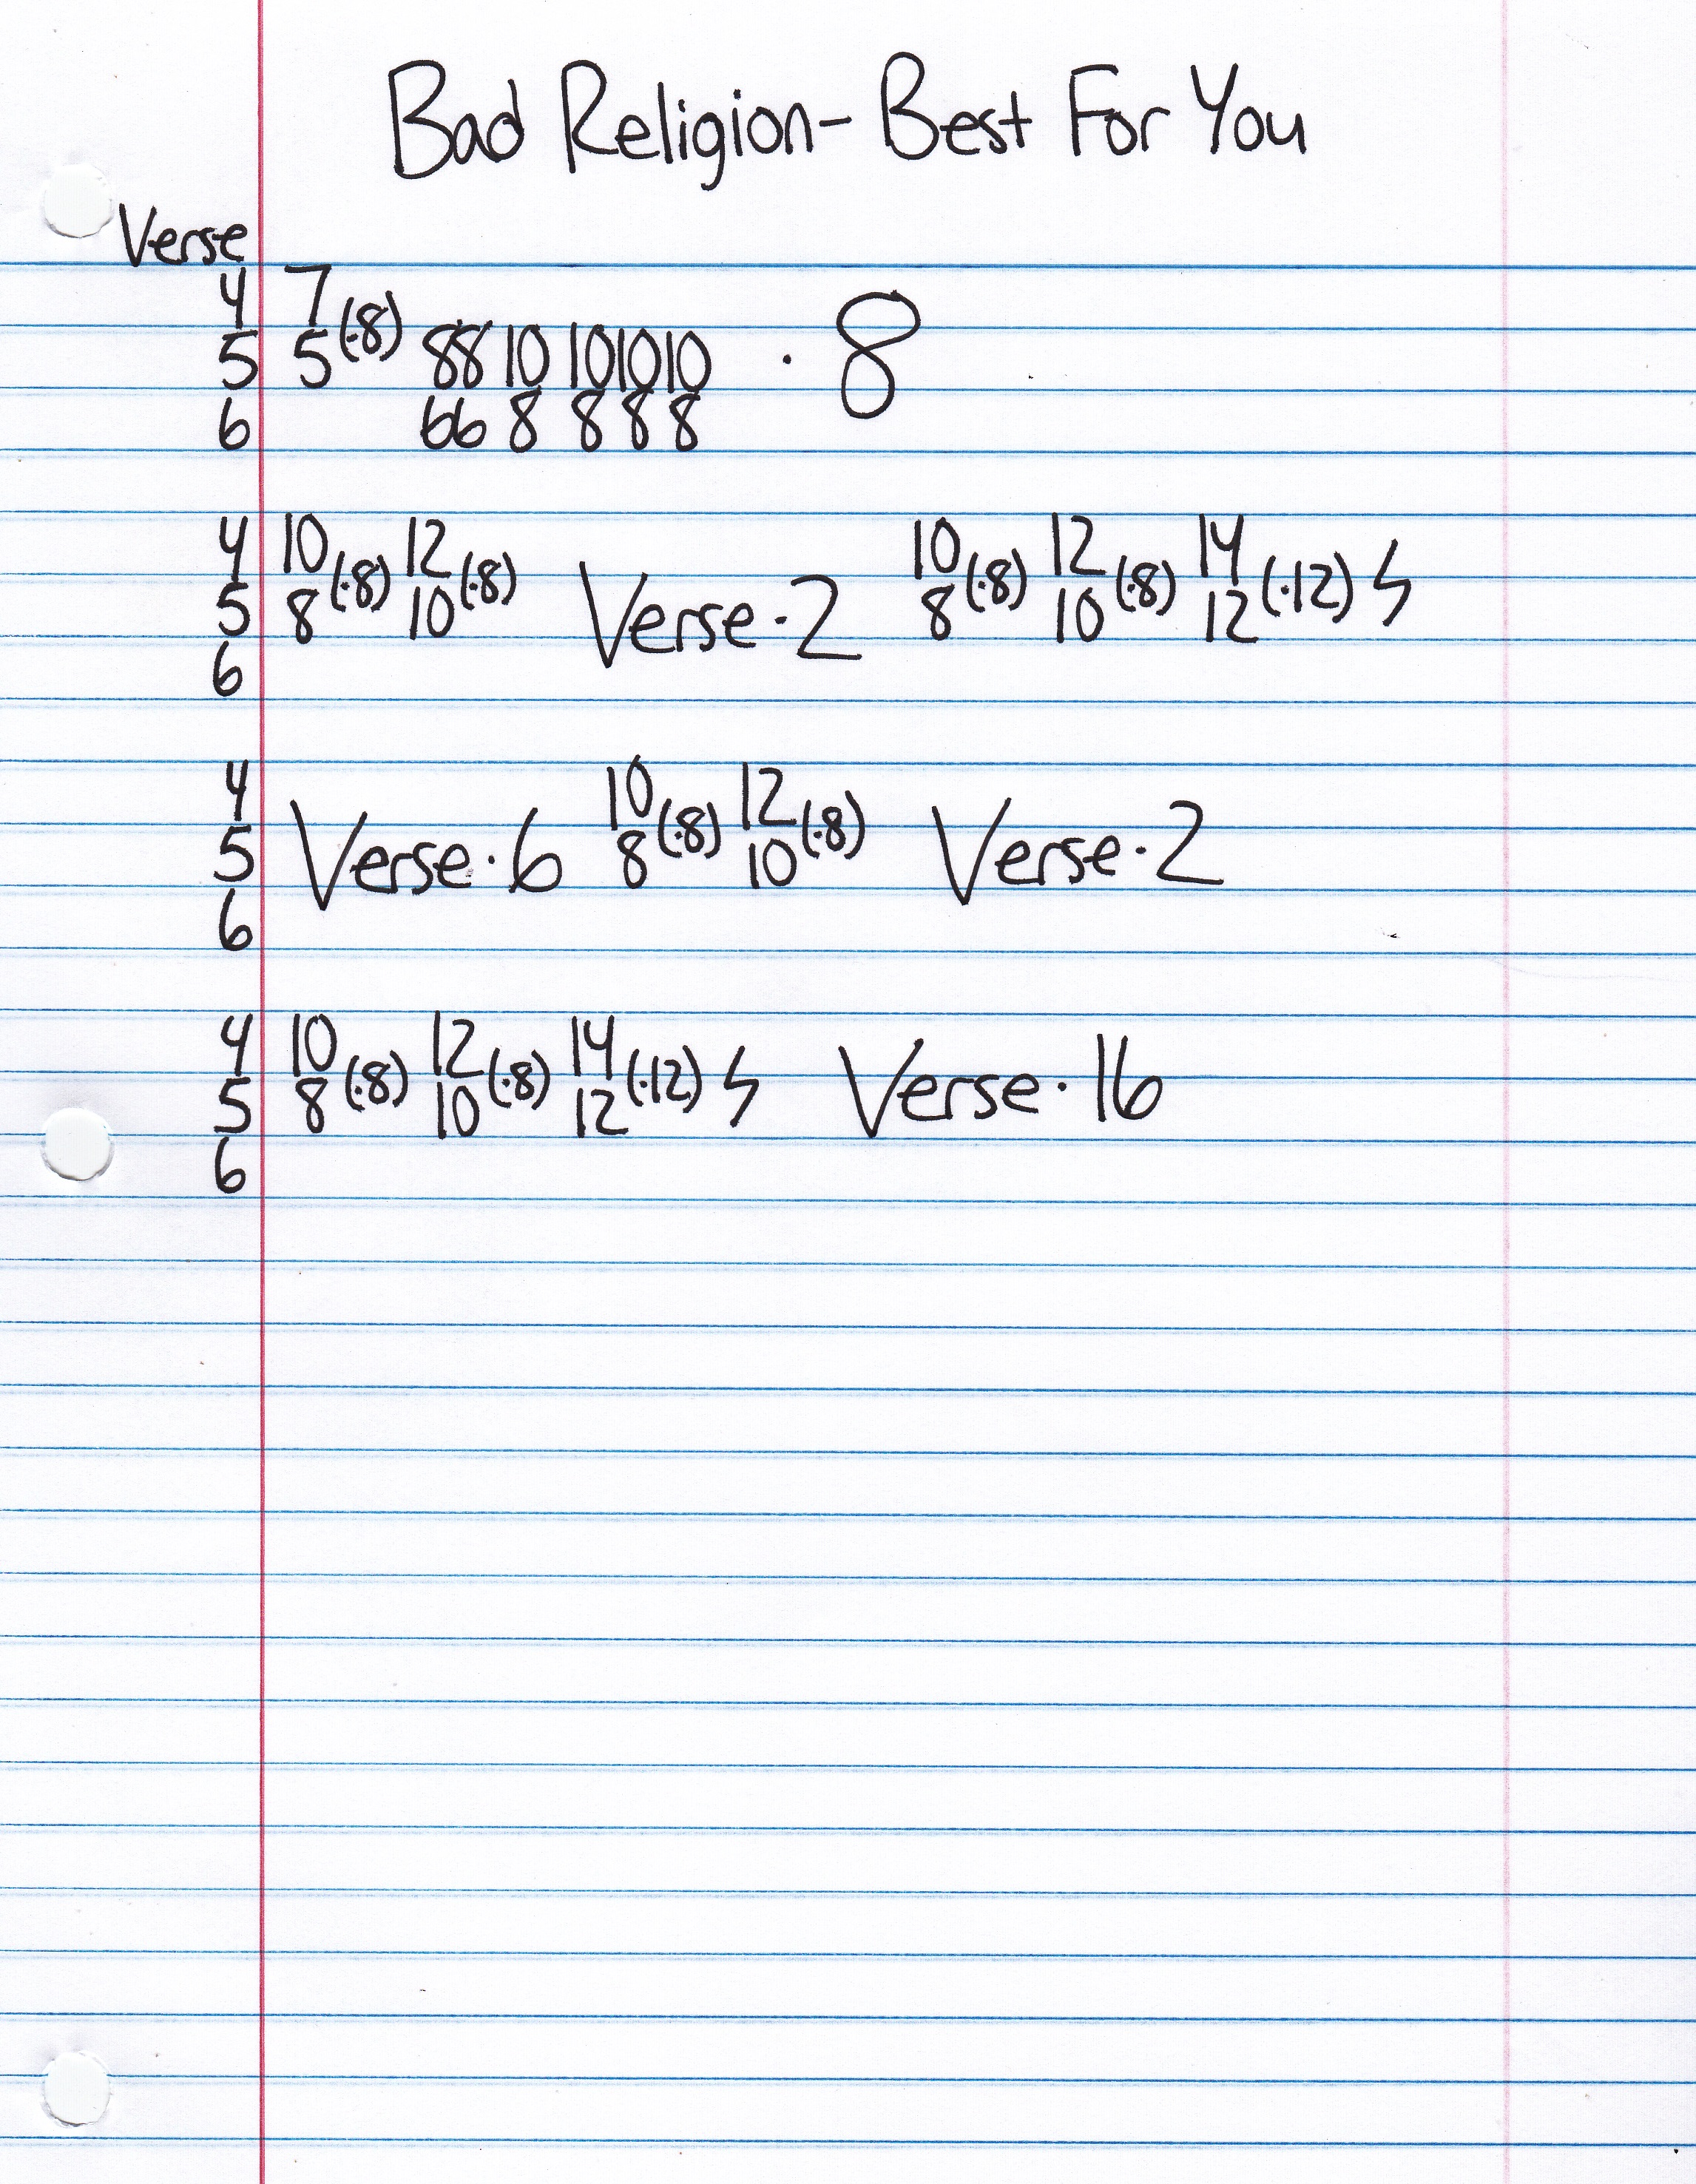 Bad Religion- Best For You
Verse
4 7
5 5 (·8) 88 10 10 10 10 · 8
6 66 8 8 8 8
4 10 12 10 12 14
5 8 (·8) 10 (·8) Verse·2 8 (·8) 10 (·8) 12 (·12) ϟ
6
4 10 12
5 Verse·6 8 (·8) 10 (·8) Verse·2
6
4 10 12 14
5 8 (·8) 10 (·8) 12 (·12) ϟ Verse·16
6